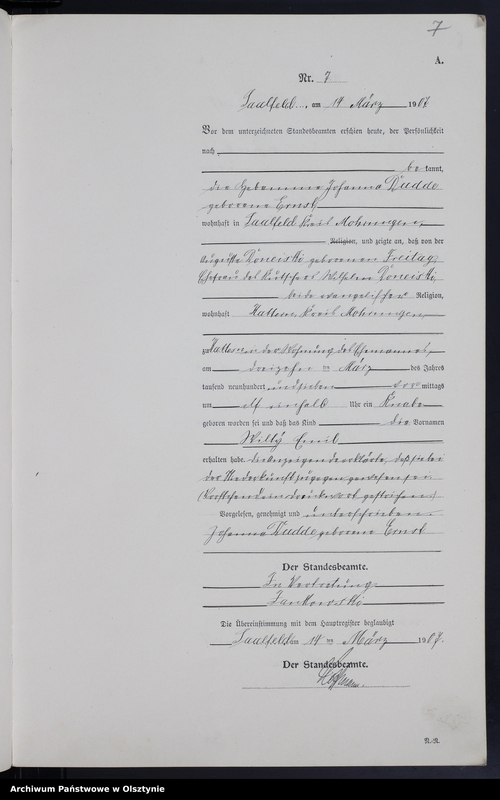 7
A.
Nr. 7
Saalfeld am 14 März 1907
Vor dem unterzeichneten Standesbeamten erschien heute, der Persönlichkeit
nach
be kannt,
die Hebamme Johanna Kudde
geborene Ernst,
wohnhaft in Saalfeld Kreis Mohrungen,
Religion, und zeigte an, daß von der
Auguste geborenen Freitag,
Ehefrau des Kutschers Wilhelm
beide evangelischer Religion,
wohnhaft Kreis Mohrungen,
zu in der Wohnung des Ehemannes,
am dreizehn ten März des Jahres
tausend neunhundert und sieben vor mittags
um elf einhalb Uhr ein Knabe
geboren worden sei und daß das Kind die Vornamen
Willy Emil
erhalten habe. die Anzeigende erklärte, daß sie bei
der Niederkunft zugegen gewesen sei.
(Vorstehend ein Druckwort gestrichen.)
Vorgelesen, genehmigt und unterschrieben.
Johanna Kudde geborene Ernst
Der Standesbeamte.
In Vertretung
Jankowski
Die Übereinstimmung mit dem Hauptregister beglaubigt
Saalfeld am 14 ten März 1907.
Der Standesbeamte.
R.-R.
Archiwum Państwowe w Olsztynie